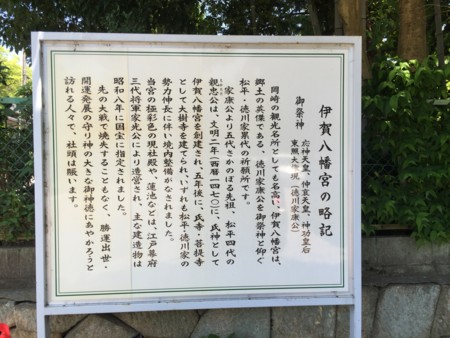 伊賀八幡宮の略記
御祭神
応神天皇、仲哀天皇、神功皇后
東照大権現（徳川家康公）
岡崎の観光名所としても名高い、伊賀八幡宮は、
郷土の英傑である、徳川家康公を御祭神と仰ぐ
松平・徳川家累代の祈願所です。
家康公より五代さかのぼる先祖、松平四代の
親忠公は、文明二年（西暦一四七〇）に、氏神として
伊賀八幡宮を創建され、五年後に、氏寺・菩提寺
として大樹寺を建てられ、いずれも松平・徳川家の
勢力伸長に伴い境内整備がなされました。
当宮の極彩色の現社殿や、蓮池などは、江戸幕府
三代将軍家光公により造営され、主な建造物は
昭和八年に国宝に指定されました。
先の大戦で焼失することもなく、勝運出世・
開運発展の守り神の大きな御神徳にあやかろうと
訪れる人々で、社頭は賑います。